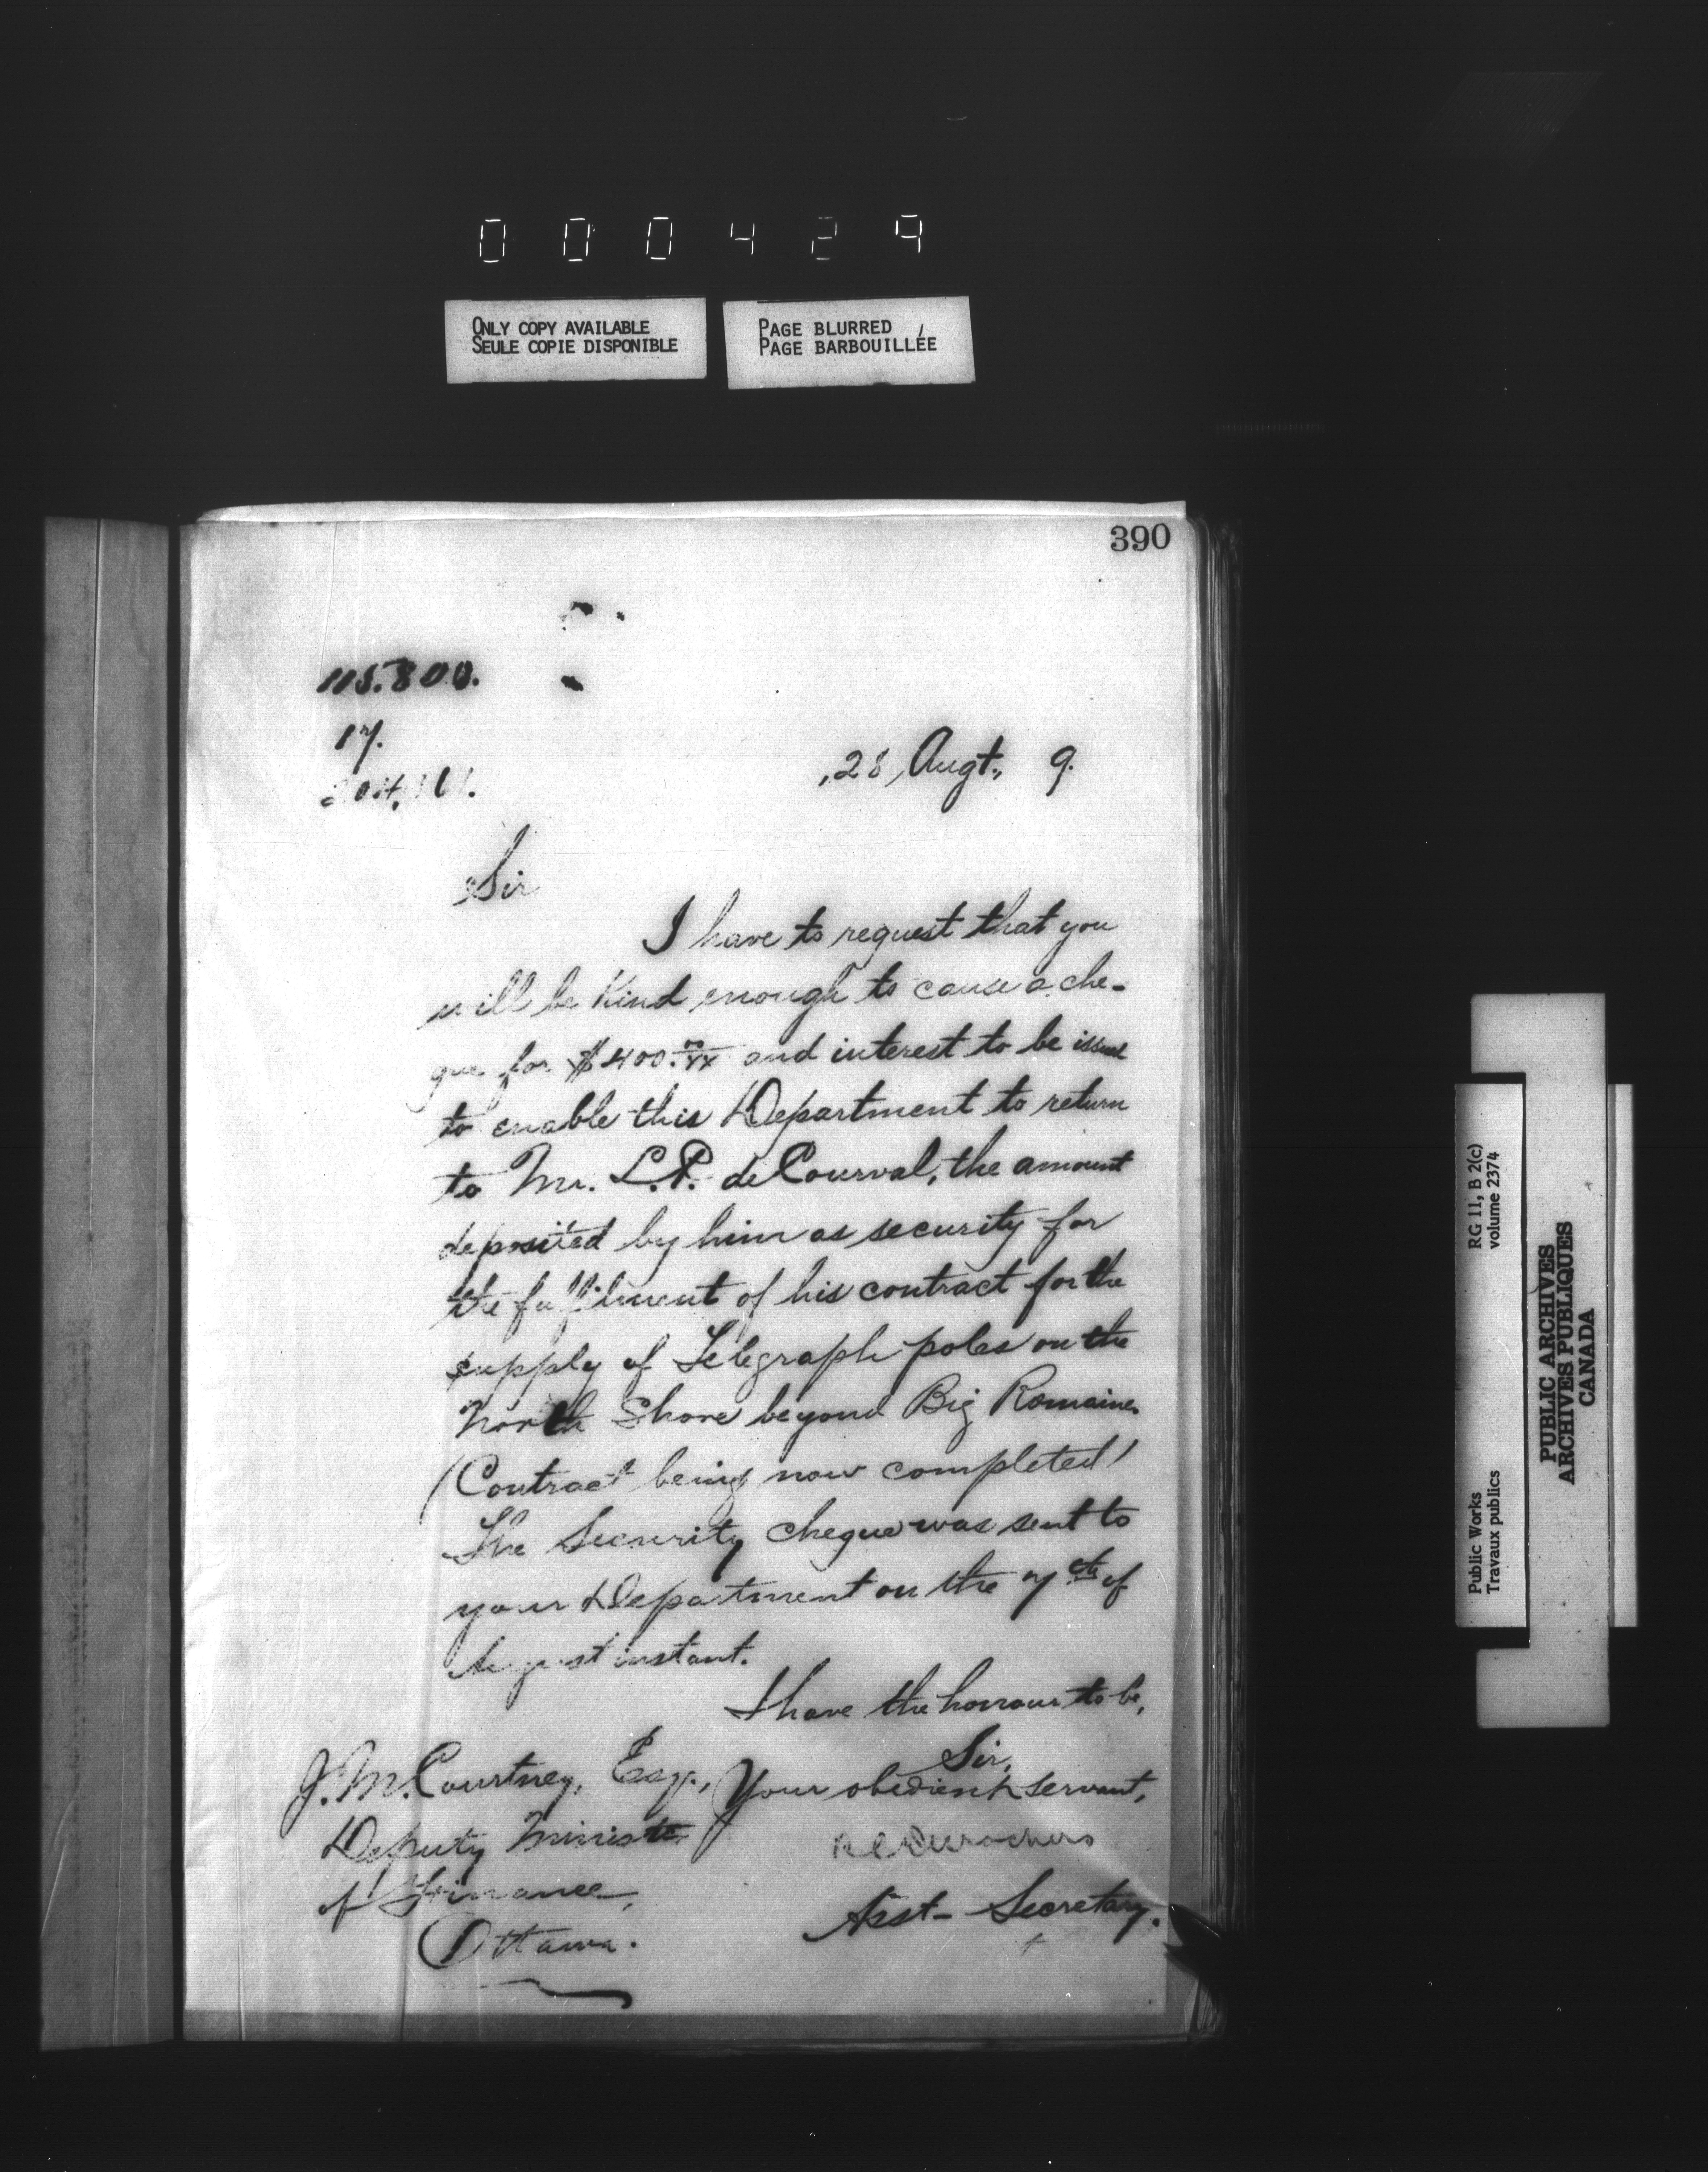 000429
ONLY COPY AVAILABLE
SEULE COPIE DISPONIBLE
PAGE BLURRED
PAGE BARBOUILLÉE
390
115.800.
17.
28, Augt., 9.
Sir
I have to request that you
will be Kind enough to cause a che-
que for $400.00/xx and interest to be issued
to enable this Department to return
to Mr. L.P. de Courval, the amount
deposited by him as security for
the fulfilment of his contract for the
supply of Telegraph poles on the
North Shore beyond Big Romaine.
(Contract being now completed)
The Security cheque was sent to
your Department on the 7th of
August instant.
I have the honour to be,
Sir,
Your obedient servant,
Asst- Secretary.
J. M. Courtney, Esq.,
Deputy Minister
of Finance,
Ottawa.
Public Works
Travaux publics
RG 11, B 2(c)
volume 2374
PUBLIC ARCHIVES
ARCHIVES PUBLIQUES
CANADA